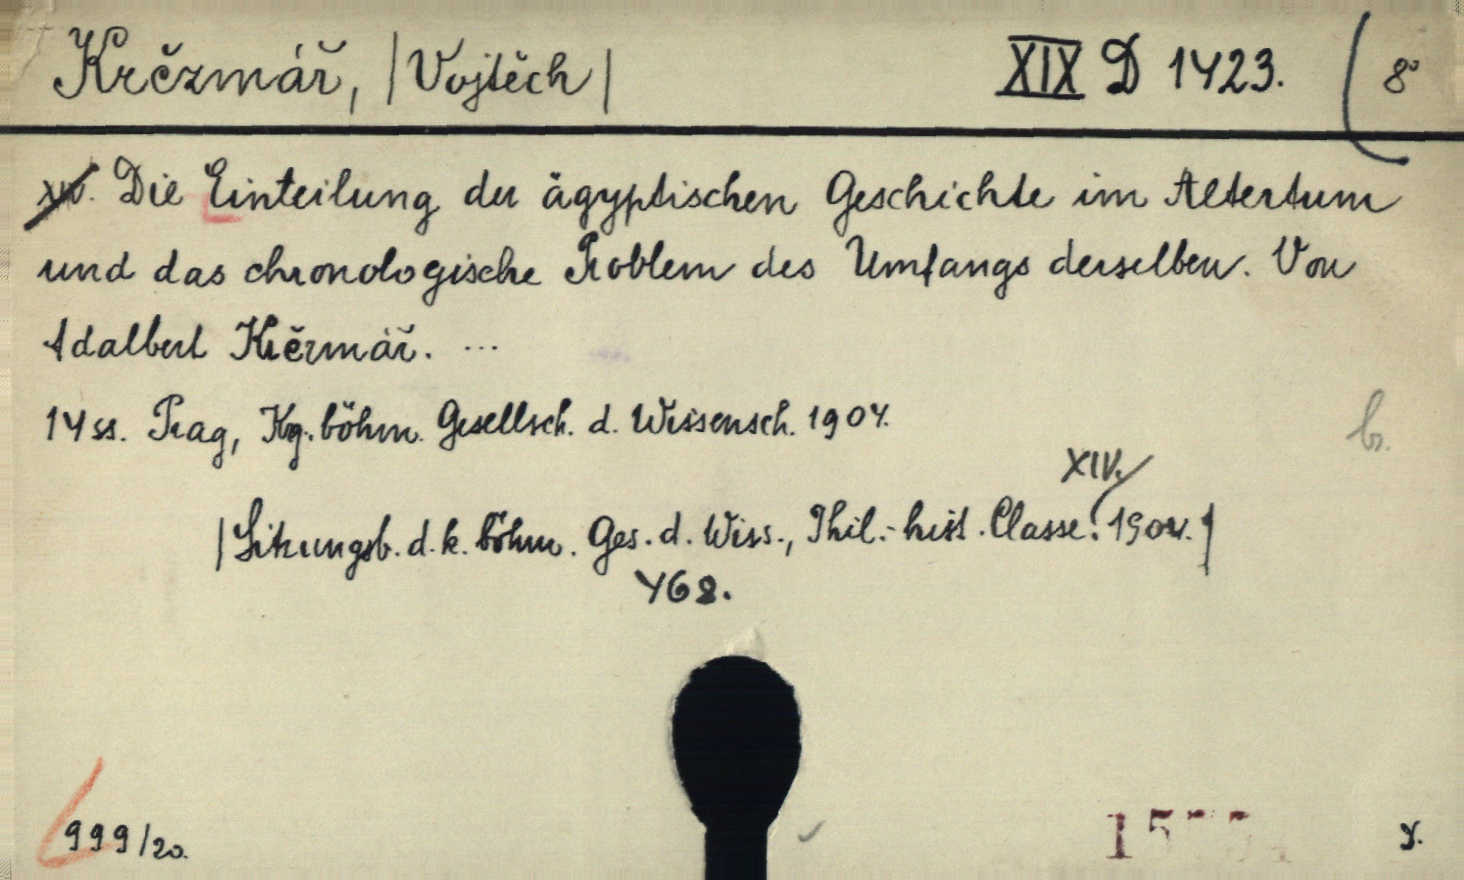 Krčzmář, |Vojtěch|
XIX D 1423. (8°
Die Einteilung der ägyptischen Geschichte im Altertum
und das chronologische Problem des Umfangs derselben. Von
Adalbert Krčzmář. ...
14 ss. Prag, Kg. böhm. Gesellsch. d. Wissensch. 1904.
b.
XIV.
|Sitzungsb. d. k. böhm. Ges. d. Wiss., Phil.-hist. Classe. 1904.|
468.
999/20.
y.